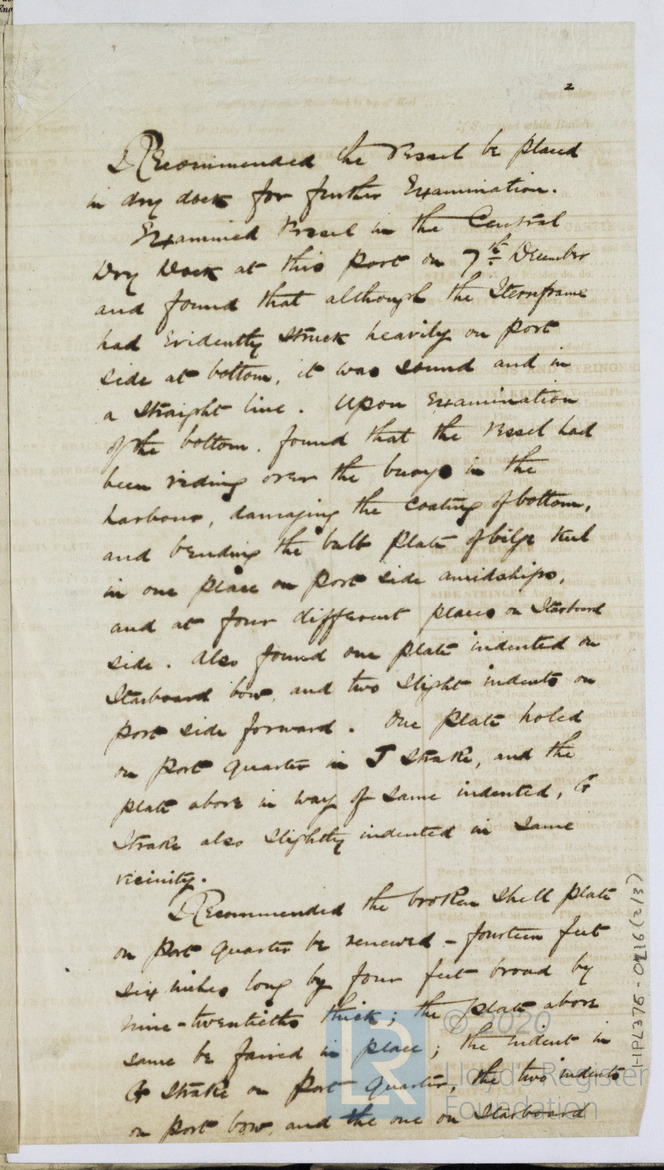 2
I Recommended the Vessel be placed
in dry dock for further Examination.
Examined Vessel in the Central
Dry Dock at this Port on 7th December
and found that although the Sternframe
had Evidently Struck heavily on Port
side at bottom, it was sound and in
a Straight line. Upon Examination
of the bottom, found that the Vessel had
been riding over the buoys in the
harbour, damaging the Coating of bottom,
and bending the bulb Plate of bilge Keel
in one place on Port side amidships,
and at four different places on Starboard
side. Also found one plate indented on
Starboard bow, and two Slight indents on
port side forward. One Plate holed
on Port quarter in J Strake, and the
plate above in way of same indented, G
Strake also Slightly indented in same
vicinity.
I Recommended the broken Shell plate
on Port quarter be renewed - fourteen feet
six inches long by four feet broad by
nine-twentieths thick; the plate above
same be faired in place; the indent in
G Strake on Port Quarter, the two indents
on Port bow, and the one on Starboard
HPL376-0216(2/3)
© 2020
Lloyd's Register
Foundation
LR